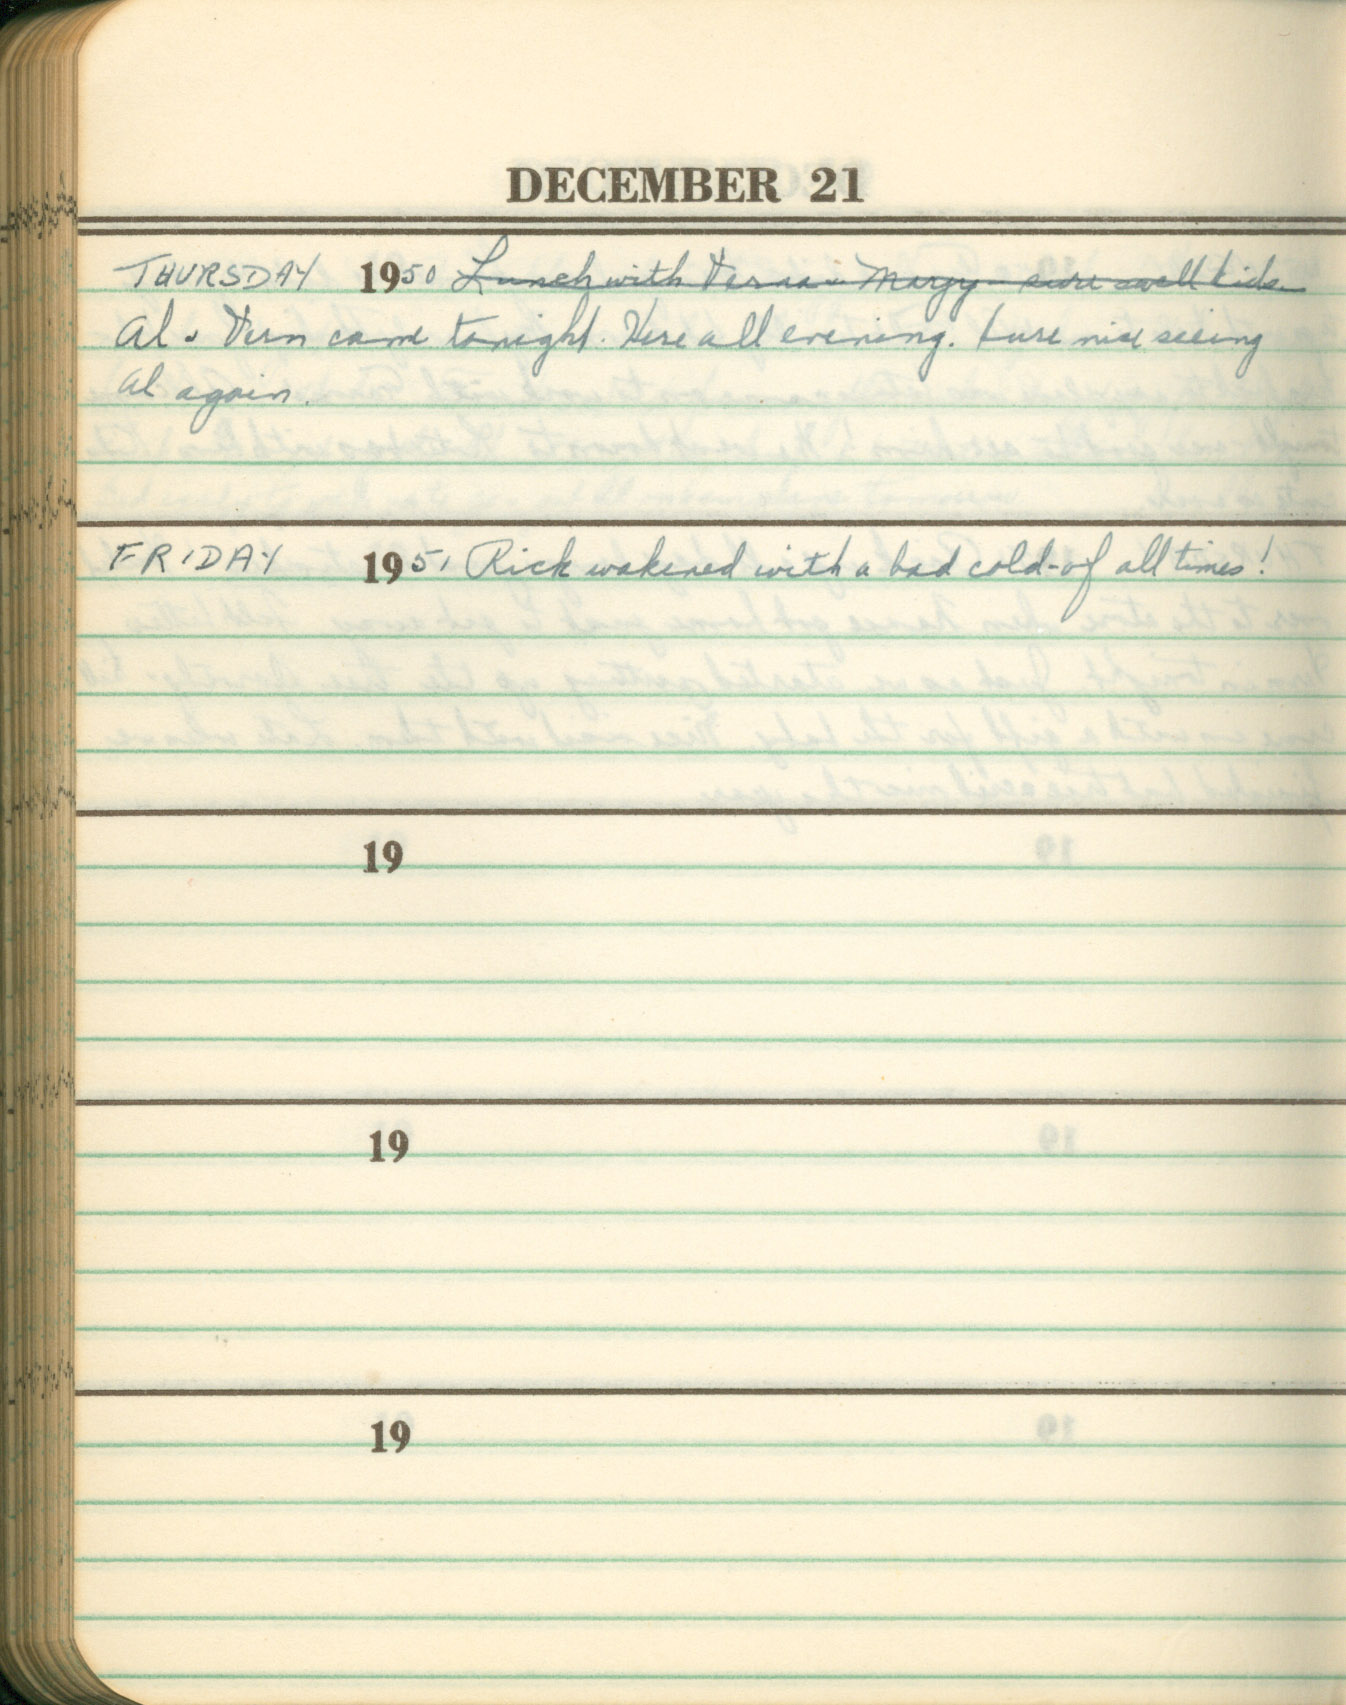 DECEMBER 21
THURSDAY 1950 Lunch with Verna & Margy - sure swell kids
Al & Vern came tonight. Here all evening. Sure nice seeing
Al again.
FRIDAY 1951 Rick wakened with a bad cold-of all times!
19
19
19